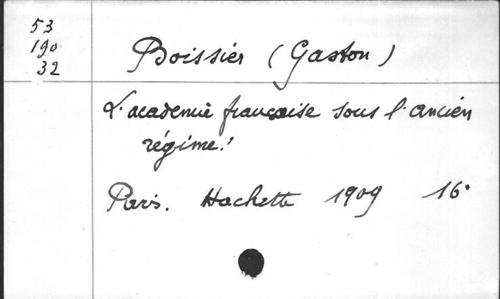 53
190
32
Boissier (Gaston)
L'academie française sous l'ancien
régime.
Paris. Hachette 1909 16°